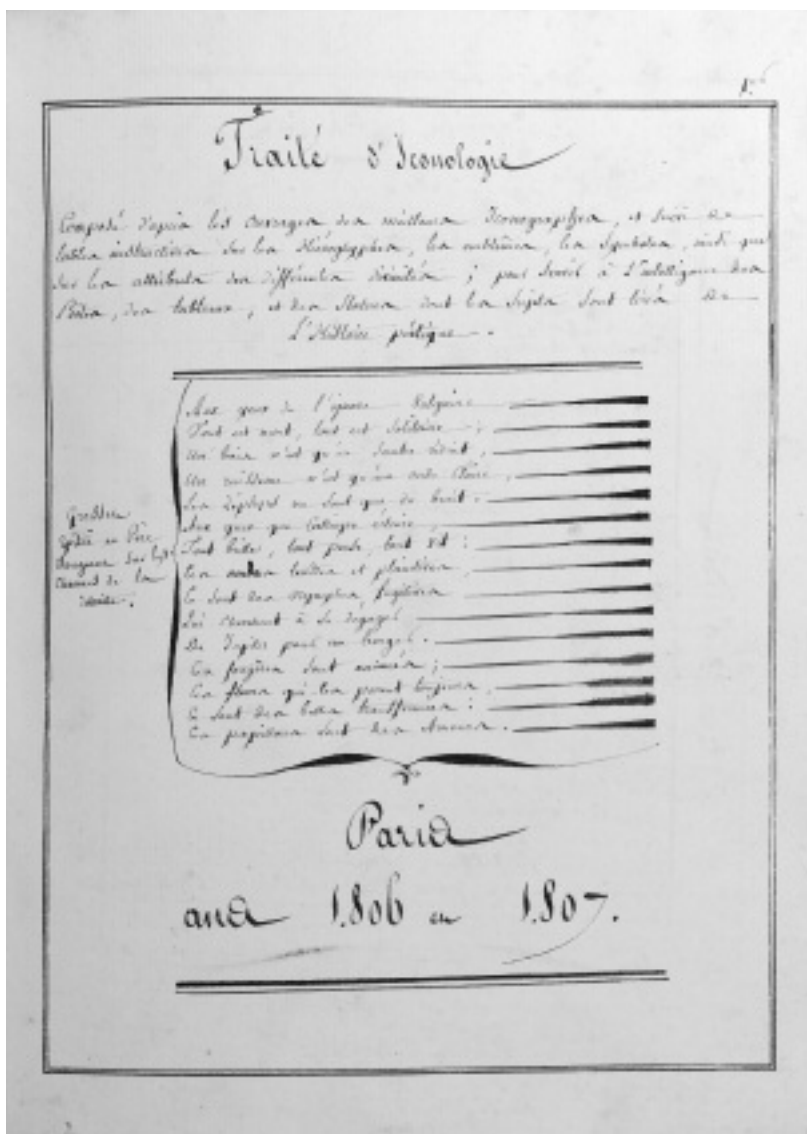 1.er
Traité d'Iconologie
Composé d'après les ouvrages des meilleurs Iconographes, et suivi de
tables instructives sur les Hiéroglyphes, les emblêmes, les Symboles, ainsi que
sur les attributs des différentes divinités ; pour servir à l'intelligence des
Poëtes, des tableaux, et des Statues dont les Sujets sont tirés de
L'Histoire poëtique.
Aux yeux de l'ignare Vulgaire
Tout est mort, tout est solitaire ;
Un bois n'est qu'un sombre réduit,
Un ruisseau n'est qu'une onde claire,
Les Zéphyrs ne sont que du bruit.
Aux yeux que Calliope éclaire,
Tout brille, tout pense, tout vit :
Ces ondes tendres et plaintives,
Ce sont des nymphes fugitives
Qui cherchent à se dégager
De Jupiter pour un berger.
Ces fougères sont animées ;
Ces fleurs qui les parent toujours,
Ce sont des belles transformées :
Ces papillons sont des Amours.
Gresset
épitre au Père
Bougeant sur
de la
Paris
ans 1.806 et 1.807.